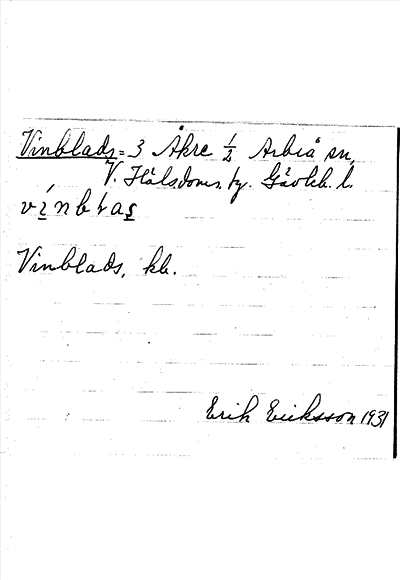 Vinblads = 3 Åkre ½ Arbrå sn,
V. Häls. doms. ty. Gävleb. l.
vinblas
Vinblads, kb.
Erik Eriksson 1931